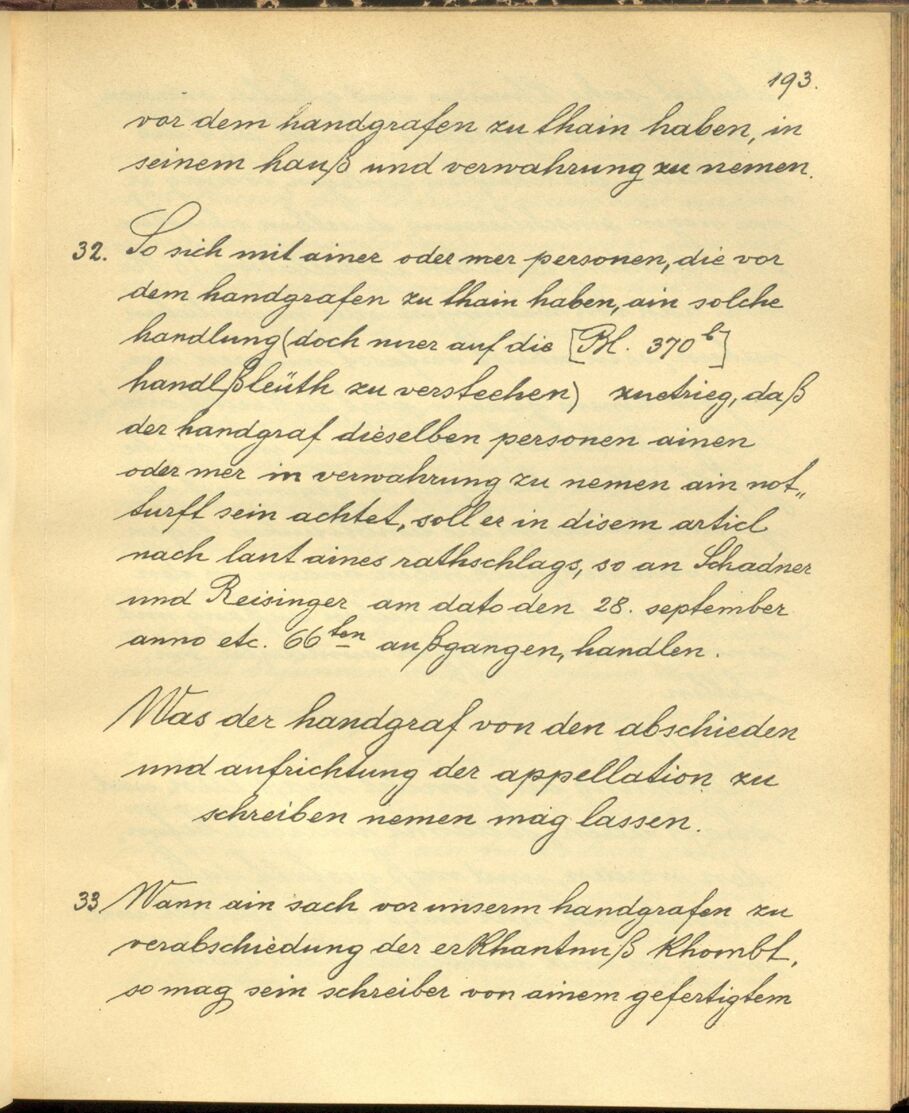 193.
vor dem handgrafen zu thain haben, in
seinem hauß und verwahrung zu nemen.
32. So sich mit ainer oder mer personen, die vor
dem handgrafen zu thain haben, ain solche
handlung (doch nuer auf die [Bl. 370 b]
handlßleüth zu verstechen) zuetrieg, daß
der handgraf dieselben personen ainen
oder mer in verwahrung zu nemen ain not„
turft sein achtet, soll er in disem articl
nach laut aines rathschlags, so an Schadner
und Reisinger am dato den 28. september
anno etc. 66ten außgangen, handlen.
Was der handgraf von den abschieden
und aufrichtung der appellation zu
schreiben nemen mag lassen.
33 Wann ain sach vor unserm handgrafen zu
verabschiedung der erkhantnuß khombt,
so mag sein schreiber von ainem gefertigtem